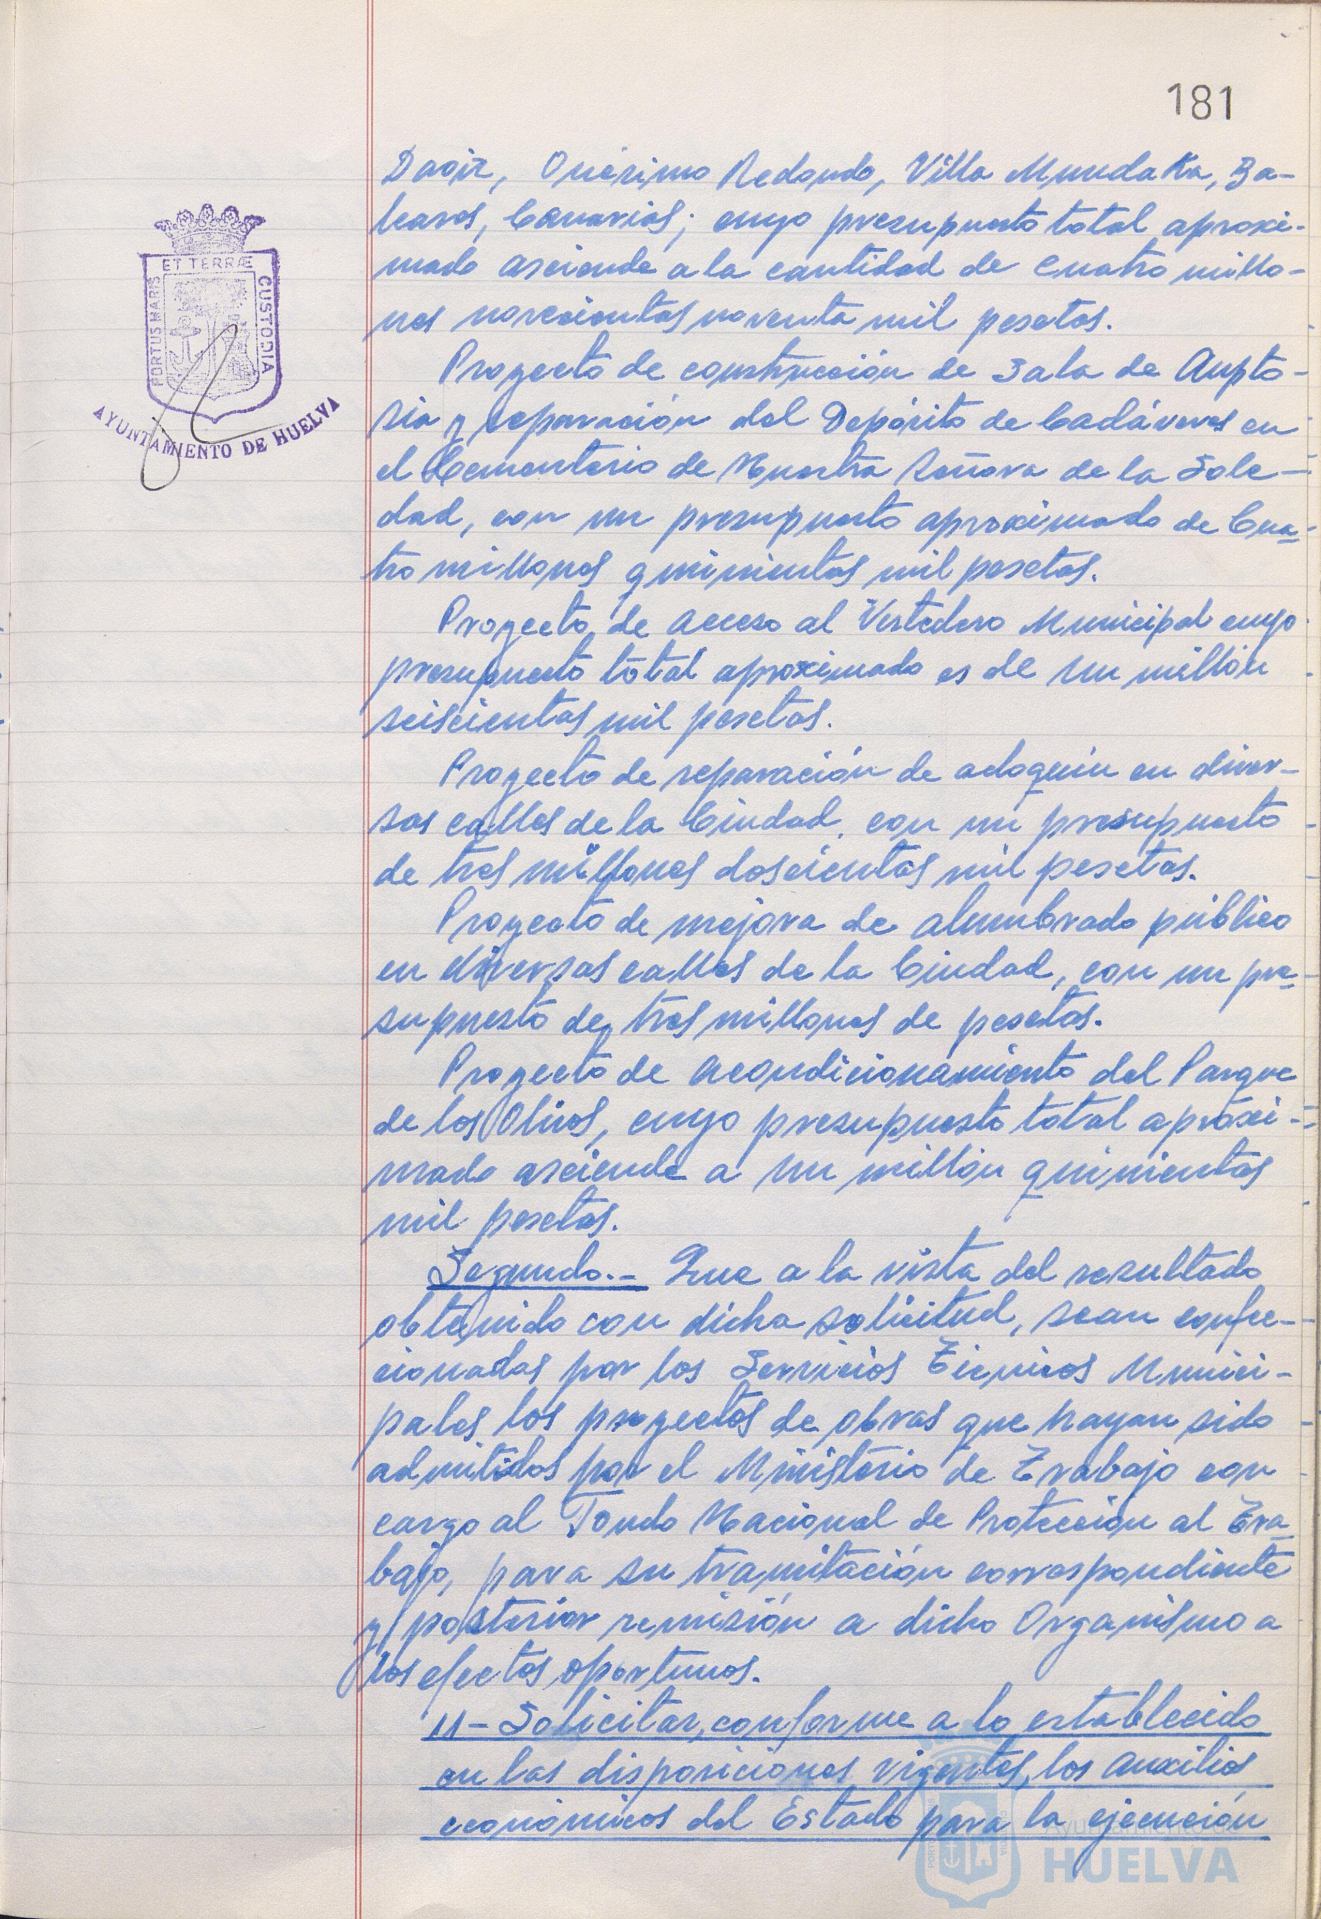 181
Daoiz, Onésimo Redondo, Villa Mundaka, Ba-
leares, Canarias; cuyo presupuesto total aproxi-
mado asciende a la cantidad de cuatro millo-
nes novecientas noventa mil pesetas.
Proyecto de construcción de Sala de Aupto-
sia y reparación del Depósito de Cadáveres en
el Cementerio de Nuestra Señora de la Sole-
dad, con un presupuesto aproximado de Cua-
tro millones quinientas mil pesetas.
Proyecto de acceso al Vertedero Municipal cuyo
presupuesto total aproximado es de un millón
seiscientas mil pesetas.
Proyecto de reparación de adoquín en diver-
sas calles de la Ciudad, con un presupuesto
de tres millones doscientas mil pesetas.
Proyecto de mejora de alumbrado público
en diversas calles de la Ciudad, con un pre-
supuesto de tres millones de pesetas.
Proyecto de acondicionamiento del Parque
de los Olivos, cuyo presupuesto total aproxi-
mado asciende a un millón quinientas
mil pesetas.
Segundo.- Que a la vista del resultado
obtenido con dicha solicitud, sean confec-
cionadas por los Servicios Técnicos Munici-
pales los proyectos de obras que hayan sido
admitidos por el Ministerio de Trabajo con
cargo al Fondo Nacional de Protección al Tra-
bajo, para su tramitación correspondiente
y posterior remisión a dicho Organismo a
los efectos oportunos.
11- Solicitar, conforme a lo establecido
en las disposiciones vigentes, los auxilios
económicos del Estado para la ejecución
PORTUS MARIS ET TERRÆ CUSTODIA
AYUNTAMIENTO DE HUELVA
Ayuntamiento de
HUELVA